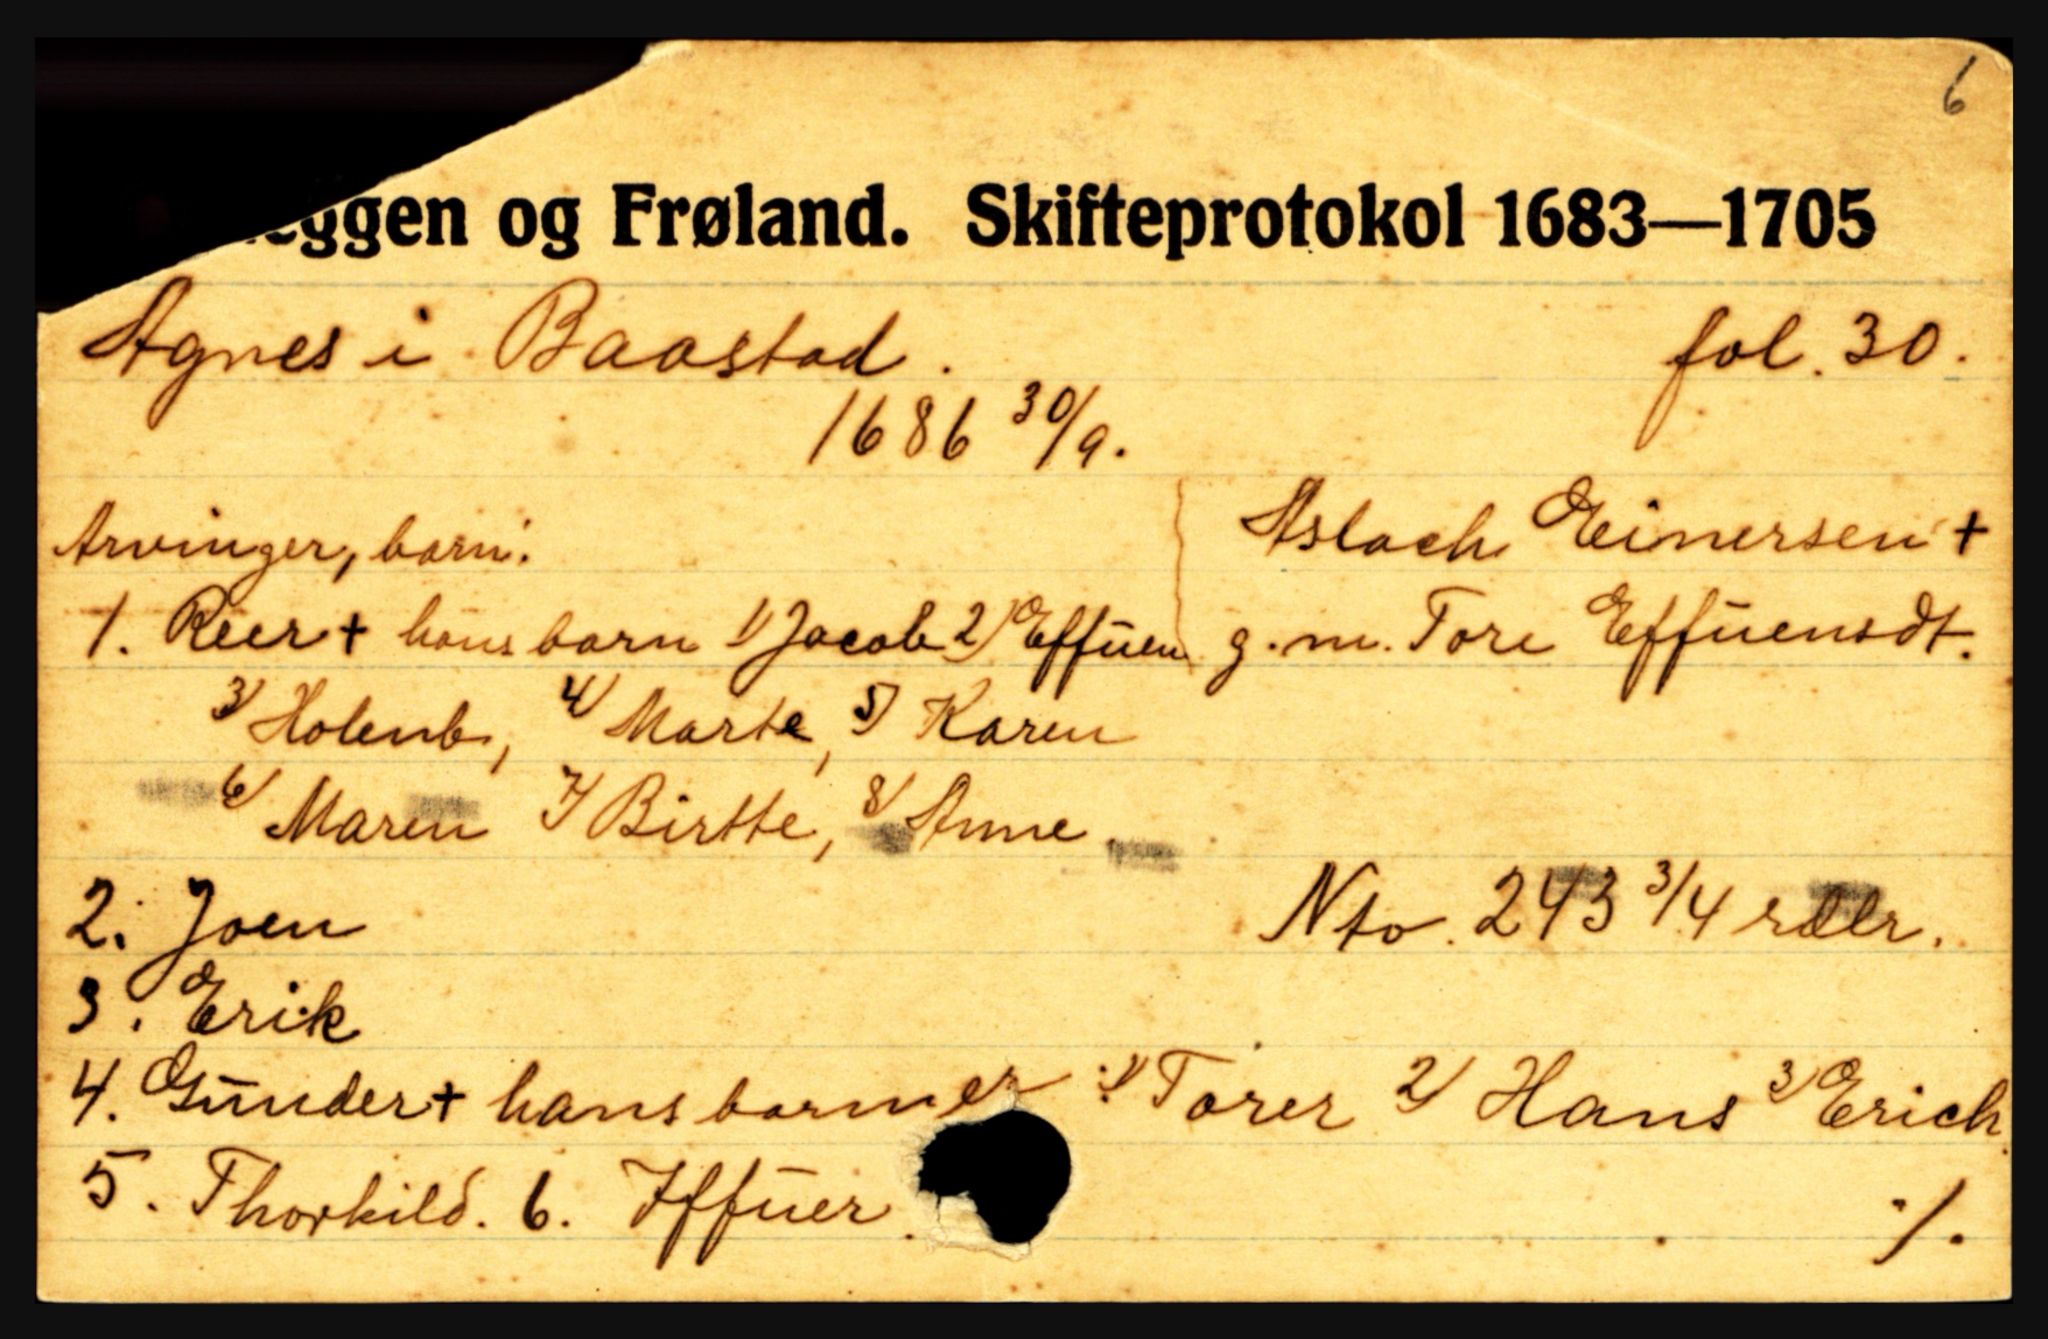 6
eggen og Frøland. Skifteprotokol 1683—1705
Agnes i Baastad. fol. 30.
1686 30/9.
Arvinger, barn: Aslach Einersen +
1. Reer + hans barn 1) Jacob 2) Effuen g. m. Tore Effuensdt.
3) Holenb, 4) Marte, 5) Karen
6) Maren 7) Birtte, 8) Anne
2. Joen Nto. 243 3/4 rdlr.
3. Erik
4. Gunder + hans barn er :1) Torer 2) Hans 3) Erich
5. Thorkild. 6. Iffuer.
·/.